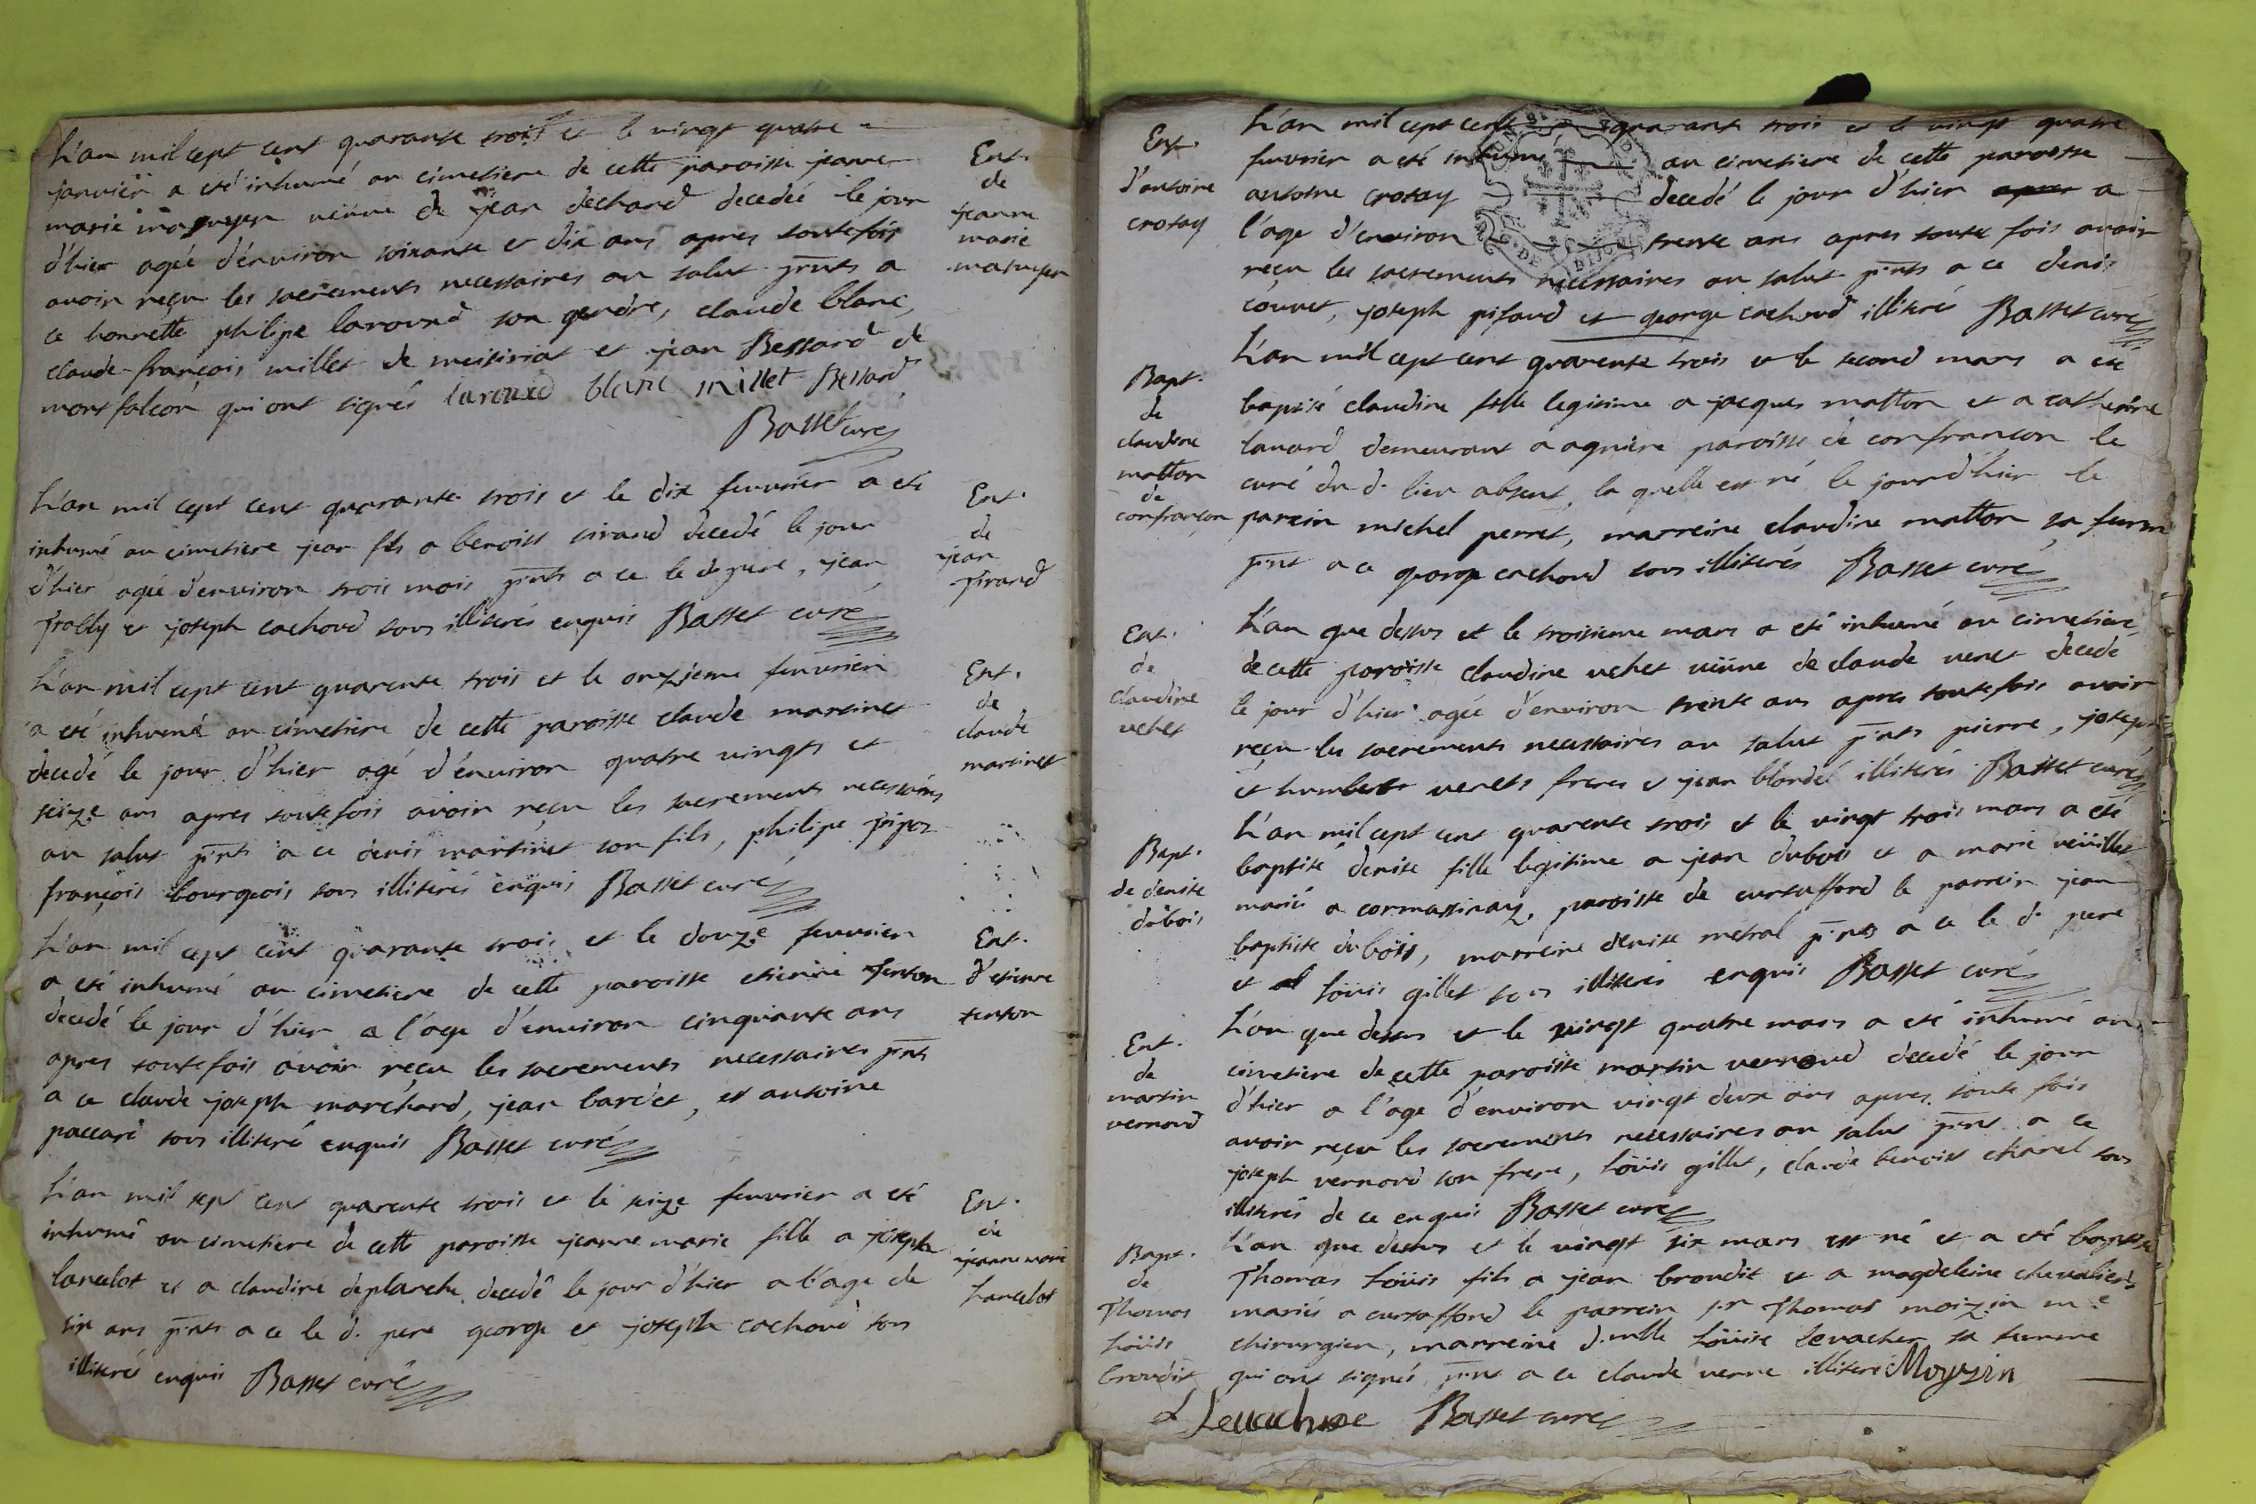 L'an mil cept cent quarante trois et le vingt quatre
janvier a eté inhumé au cimetiere de cette paroisse jeanne
marie veüve de jean dechand decedeé le jour
d'hier ageé d'énviron soixante et dix ans apres toutefois
avoir reçu les sacrements necessaires au salut pnts a
ce honnette philipe laround son gendre, claude blanc,
claude françois millet de meisiriat et jean Bessard de
montfalcon qui ont signés laround blanc millet Bessard
Basset curé
Ent.
de
jeanne
marie
L'an mil cept cent quarante trois et le dix feuvrier a eté
inhumé au cimetiere jean fils a benoist sirand decedé le jour
d'hier ageé d'environ trois mois pnts a ce le d. pere, jean
et joseph cachoud tous illiterés enquis Basset curé
Ent.
de
jean
sirand
L'an mil cept cent quarente trois et le onzieme feuvrier
a eté inhumé au cimetiere de cette paroisse claude martinet
decedé le jour d'hier agé d'énviron quatre vingts et
seize ans apres toutefois avoir reçu les sacrements necessaires
au salut pnts a ce denis martinet son fils, philipe
françois bourgeois tous illiterés enquis Basset curé
Ent.
de
claude
martinet
L'an mil cept cent quarante trois et le douze feuvrier
a eté inhumé au cimetiere de cette paroisse etienne tenton
decedé le jour d'hier a l'age d'environ cinquante ans
apres toutefois avoir reçu les sacrements necessaires pnts
a ce claude joseph marchand, jean bardet, et antoine
paccard tous illiteré enquis Basset curé
Ent.
d'etienne
tenton
L'an mil sept cent quarente trois et le seize feuvrier a eté
inhumé au cimetiere de cette paroisse jeanne marie fille a joseph
lancelot et a claudine deplanche decedé le jour d'hier a l'age de
six ans pnts a ce le d. pere george et joseph cachoud tous
illiterés enquis Basset curé
Ent.
de
jeanne marie
Lancelot
Ent.
d'antoine
crotay
L'an mil cept cent quarante trois et le vingt quatre
feuvrier a eté inhumé au cimetiere de cette paroisse
antoine crotay decedé le jour d'hier apres a
l'age d'environ trente ans apres toute fois avoir
reçu les sacrements necessaires au salut pnts a ce denis
couvet, joseph pisaud et george cachoud illiteré Basset curé
Bapt.
de
claudine
matton
de
confrançon
L'an mil cept cent quarente trois et le second mars a eté
baptisé claudine fille legitime a jacques matton et a catherine
lauard demeurant a agniere paroisse de confrancon le
curé du d. lieu absent, la quelle est né le jour d'hier le
parrein michel perret, marreine claudine matton sa femme
pnt a ce george cachoud tous illiterés Basset curé
Ent.
de
claudine
uchet
L'an que dessus et le troisieme mars a eté inhumé au cimetiere
de cette paroisse claudine uchet veüve de claude venet decede
le jour d'hier ageé d'environ trente ans apres toutefois avoir
reçu les sacrements necessaires au salut pnts pierre, joseph
et humbert venets freres et jean blondel illiterés Basset curé
Bapt.
de denise
dubois
L'an mil cept cent quarente trois et le vingt trois mars a eté
baptisé denise fille legitime a jean dubois et a marie veüillet
mariés a cormassinay, paroisse de curtafford le parrein jean
baptiste dubois, marreine denise metral pnts a ce le d. pere
et Loüis gillet tous illiterés enquis Basset curé
Ent.
de
martin
vernoud
L'an que dessus et le vingt quatre mars a eté inhumé au
cimetiere de cette paroisse martin vernoud decedé le jour
d'hier a l'age d'environ vingt deux ans apres toute fois
avoir reçu les sacrements necessaires au salut pnt a ce
joseph vernoud son frere, Loüis gillet, claude benoist charel tous
illiterés de ce enquis Basset curé
Bapt.
de
Thomas
Loüis
broudit
L'an que dessus et le vingt six mars est né et a eté baptisé
Thomas Loüis fils a jean broudit et a magdeleine chevalier
mariés a curtafford le parrein sr Thomas moizin me
chirurgien, marreine d.elle Loüise Levacher sa femme
qui ont signés pnt a ce claude verne illiteré Moyzin
Levacher Basset curé